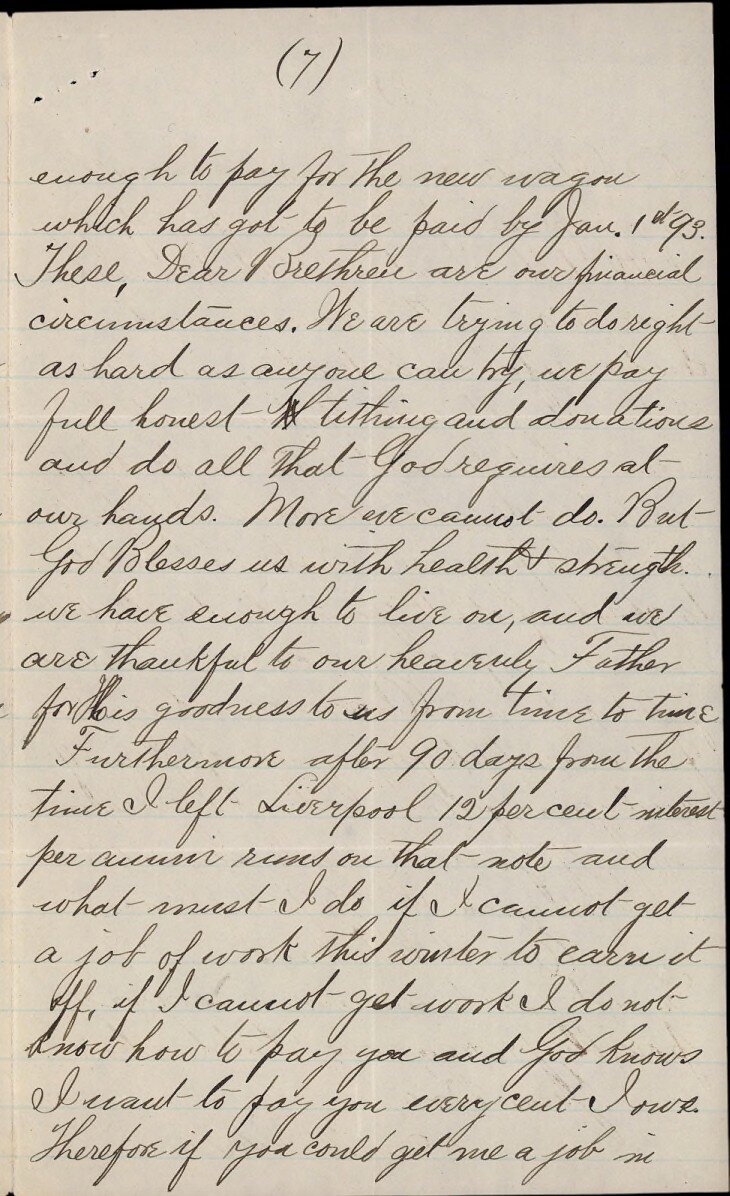 (7)
enough to pay for the new wagon
which has got to be paid by Jan. 1st 93.
These, Dear Brethren are our financial
circumstances. We are trying to do right
as hard as anyone can try, we pay
full honest tithing and donations
and do all that God requires at
our hands. More we cannot do. But
God Blesses us with health & strength.
we have enough to live on, and we
are thankful to our heavenly Father
for His goodness to us from time to time
Furthermore after 90 days from the
time I left Liverpool 12 per cent interest
per annum runs on that note and
what must I do if I cannot get
a job of work this winter to earn it
off, if I cannot get work I do not
know how to pay you and God knows
I want to pay you every cent I owe.
Therefore if you could get me a job in